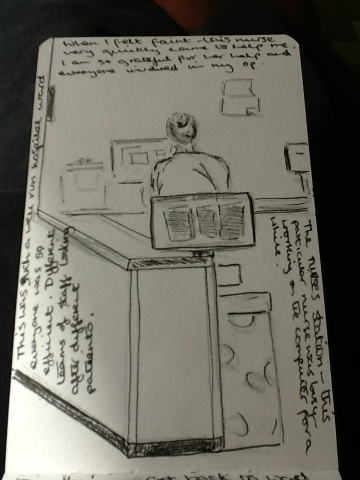 When I felt faint this nurse
very quickly came to help me.
I am so grateful for her help and
everyone involved in my op.
This was such a well run hospital ward
everyone was so
efficient. Different
teams of staff looking
after different
patients.
The nurses station - this
particular nurse was busy
working on the computer for a
while.
back to ward